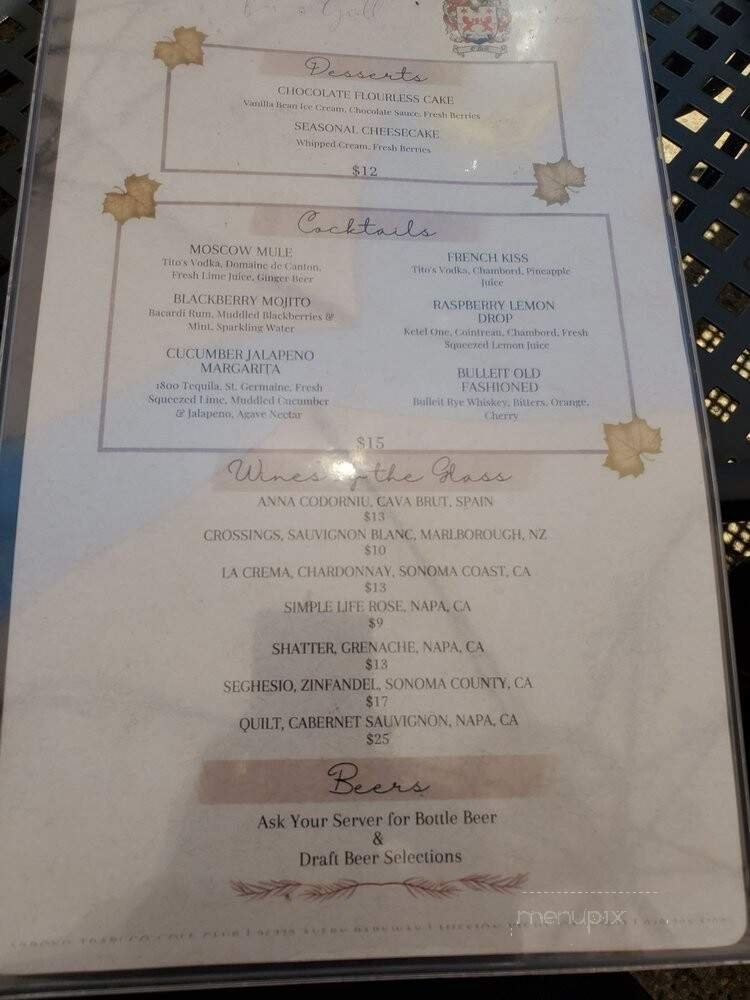 Grill
Desserts
CHOCOLATE FLOURLESS CAKE
Vanilla Bean Ice Cream, Chocolate Sauce, Fresh Berries
SEASONAL CHEESECAKE
Whipped Cream, Fresh Berries
$12
Cocktails
MOSCOW MULE
Tito's Vodka, Domaine de Canton,
Fresh Lime Juice, Ginger Beer
BLACKBERRY MOJITO
Bacardi Rum, Muddled Blackberries &
Mint, Sparkling Water
CUCUMBER JALAPENO
MARGARITA
1800 Tequila, St. Germaine, Fresh
Squeezed Lime, Muddled Cucumber
& Jalapeno, Agave Nectar
FRENCH KISS
Tito's Vodka, Chambord, Pineapple
Juice
RASPBERRY LEMON
DROP
Ketel One, Cointreau, Chambord, Fresh
Squeezed Lemon Juice
BULLEIT OLD
FASHIONED
Bulleit Rye Whiskey, Bitters, Orange,
Cherry
$15
Wines by the Glass
ANNA CODORNIU, CAVA BRUT, SPAIN
$13
CROSSINGS, SAUVIGNON BLANC, MARLBOROUGH, NZ
$10
LA CREMA, CHARDONNAY, SONOMA COAST, CA
$13
SIMPLE LIFE ROSE, NAPA, CA
$9
SHATTER, GRENACHE, NAPA, CA
$13
SEGHESIO, ZINFANDEL, SONOMA COUNTY, CA
$17
QUILT, CABERNET SAUVIGNON, NAPA, CA
$25
Beers
Ask Your Server for Bottle Beer
&
Draft Beer Selections
menupix